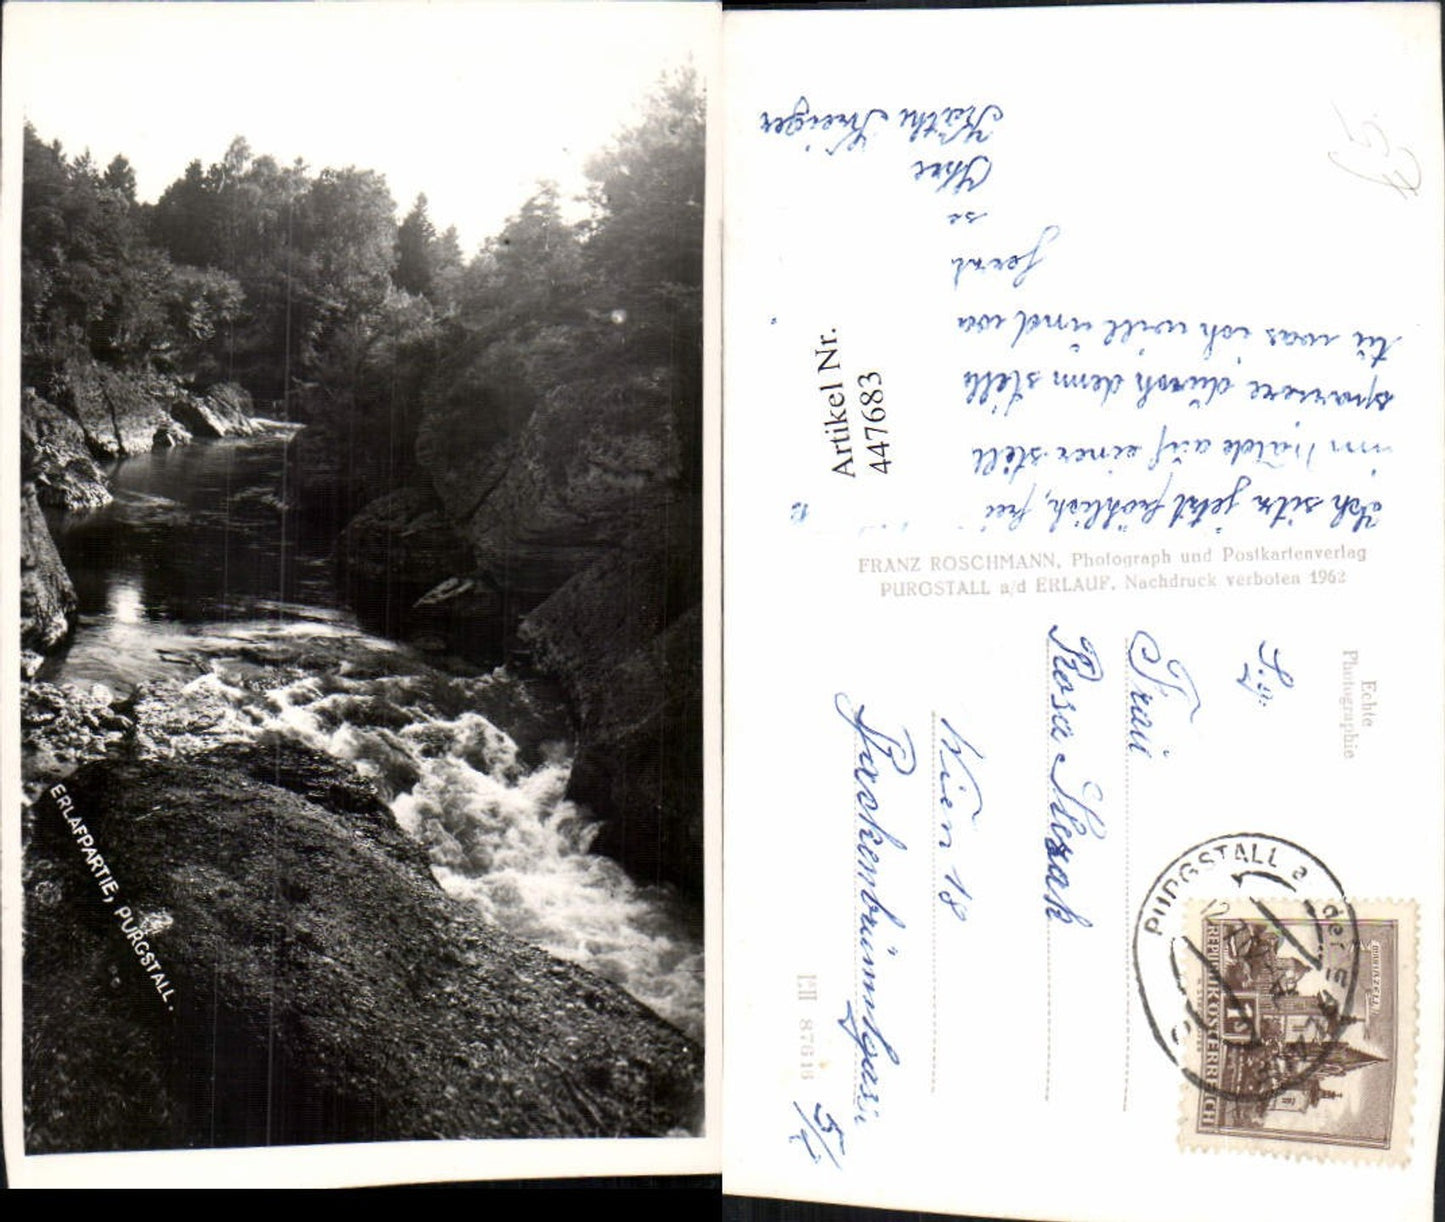 ERLAFPARTIE, PURGSTALL.
Artikel Nr.
447683
Ich sitz jetzt fröhlich, frei
im Walde auf einer stell
spaziere durch denn stell
tu was ich will und wa
gernt
se
Ihre
Käthi Kreiger
FRANZ ROSCHMANN, Photograph und Postkartenverlag
PURGSTALL a/d ERLAUF. Nachdruck verboten 1962
Echte
Photographie
Frau
Rosa Slezak
Wien 18
PURGSTALL a der
REPUBLIK ÖSTERREICH
MARIAZELL
87616